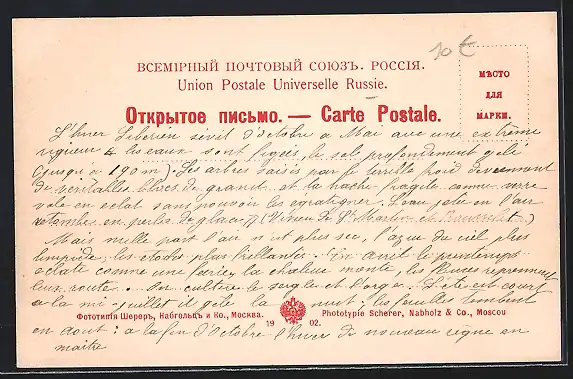 10 €
ВСЕМІРНЫЙ ПОЧТОВЫЙ СОЮЗЪ. РОССІЯ.
Union Postale Universelle Russie.
МѢСТО
ДЛЯ
МАРКИ.
Открытое письмо. — Carte Postale.
L'hiver Siberien sévit d'Octobre a Mai avec une extrême
rigueur & les eaux sont figées, le sol profondement gelé
(jusqu'a 190 m). Les arbres saisis par le terrible froid deviennent
de veritables blocs de granit et la hache fragile comme verre
vole en eclat sans pouvoir les egratigner. L'eau jetée en l'air
retombe en perles de glace, (Vivien de St Martin et)
Mais nulle part l'air n'est plus sec, l'azur du ciel plus
limpide, les etoiles plus brillantes. En avril le printemps
eclate comme une féerie, la chaleur monte, les fleuves reprennent
leur route... on cultive le seigle et l'orge. L'été est court
a la mi-juillet il gèle la nuit; les feuilles tombent
Фототипія Шереръ, Набгольцъ и Ко., Москва. 1902. Phototypie Scherer, Nabholz & Co., Moscou
en aout: a la fin d'Octobre l'hiver de nouveau regne en
maitre